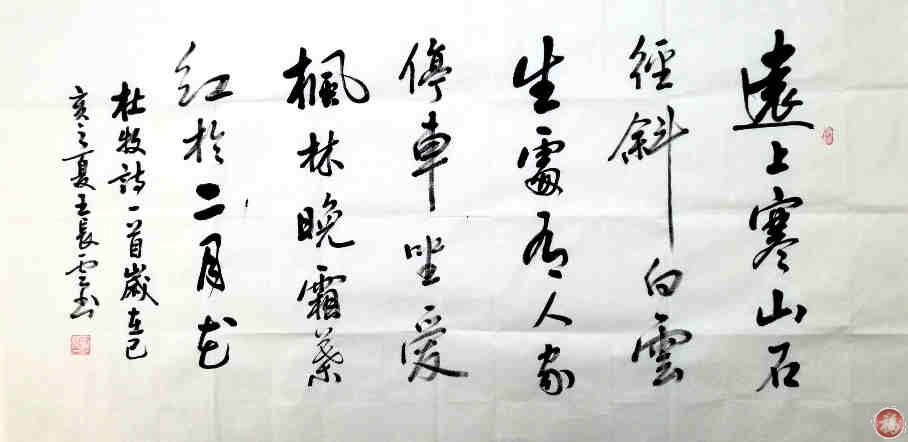 遠上寒山石
徑斜白雲
生處有人家
停車坐愛
楓林晚霜葉
紅於二月花
杜牧詩一首歲在己
亥之夏王長雲書
福